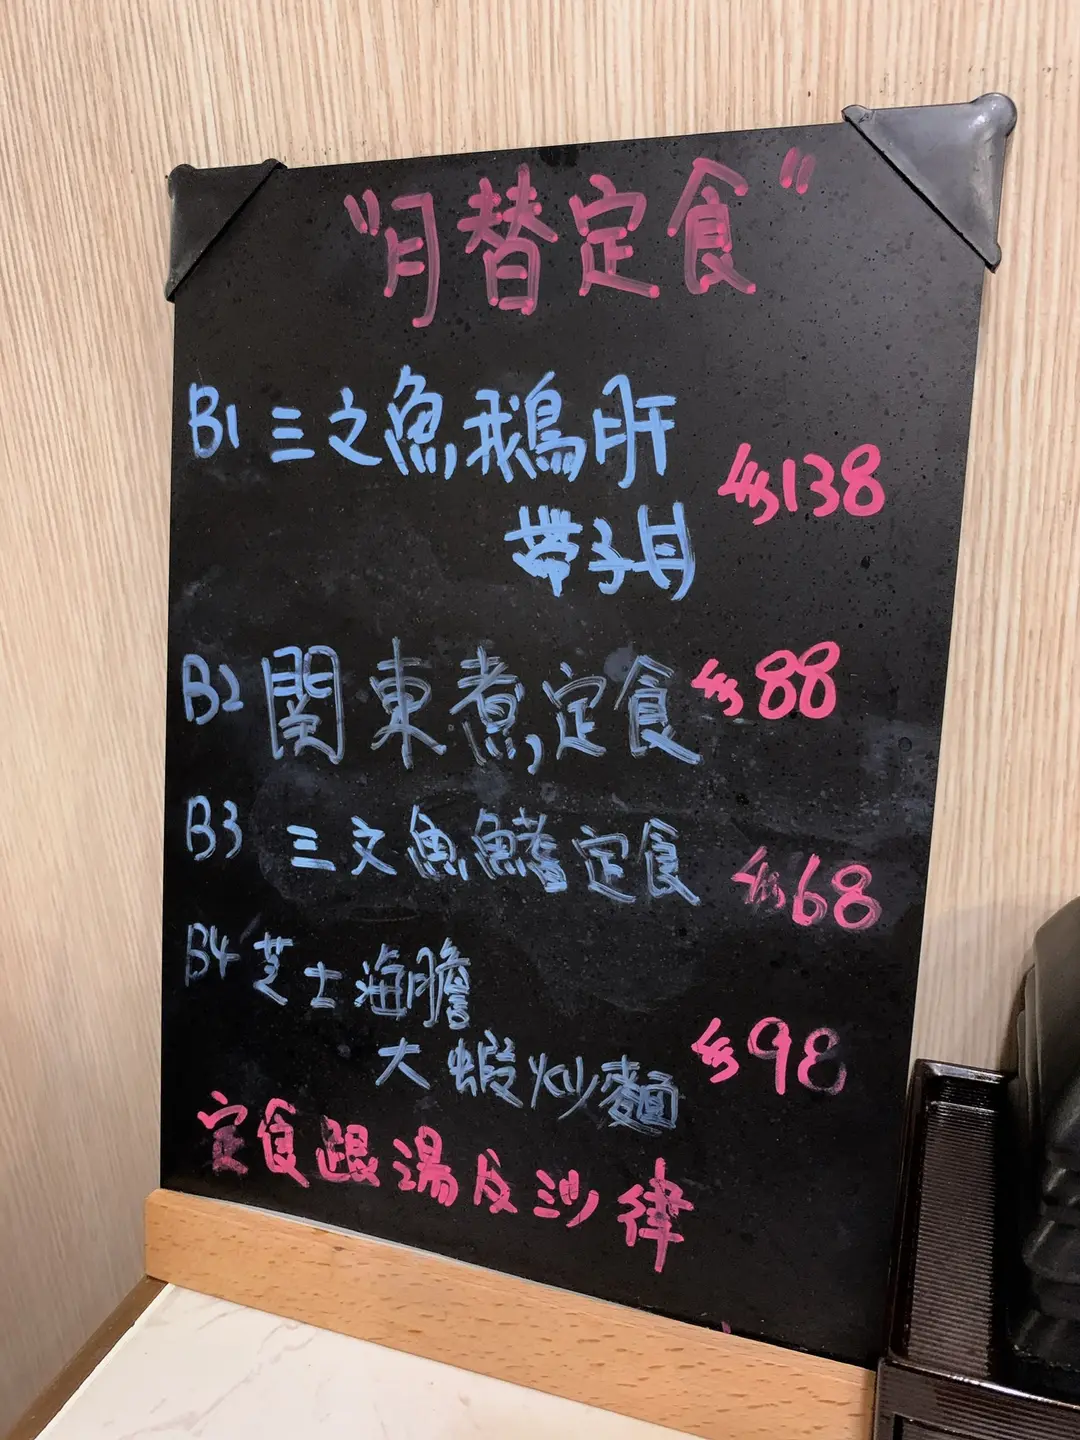 "月替定食"
B1 三文魚鵝肝
帶子丼 $138
B2 関東煮定食 $88
B3 三文魚鰭定食 $68
B4 芝士海膽
大蝦炒麵 $98
定食跟湯及沙律